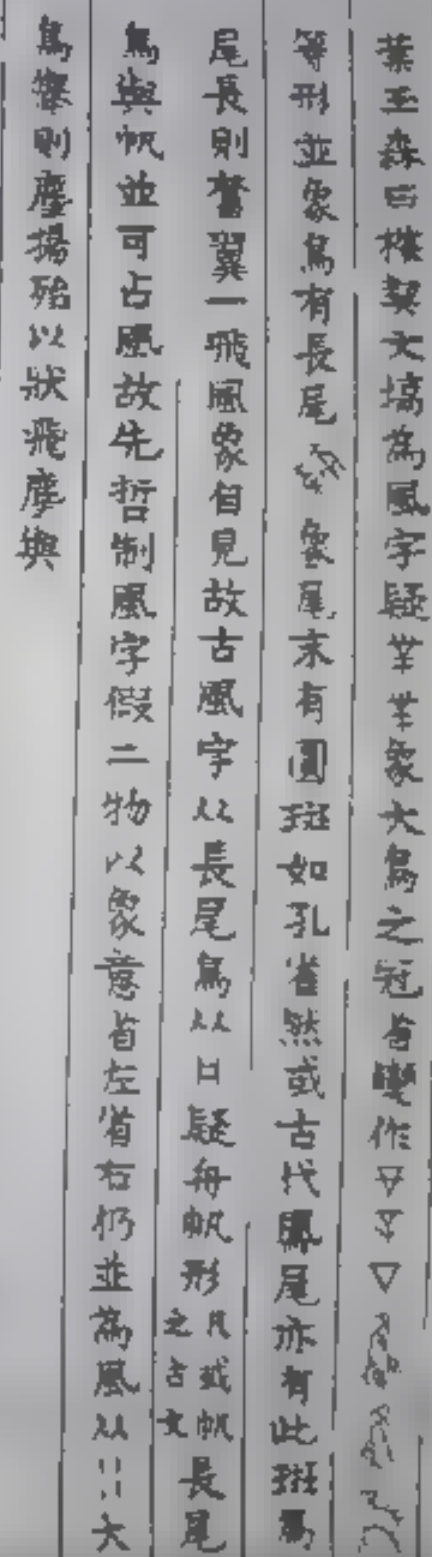 葉玉森曰槯契文塙為風字疑丵丵象大鳥之冠省變作
等形並象鳥有長尾象尾末有圓斑如孔雀然或古代鳳尾亦有此斑鳥
尾長則奮翼一飛風象自見故古風字从長尾鳥从日疑舟帆形凡或帆之古文長尾
鳥與帆並可占風故先哲制風字假二物以象意省左省右仍並為風从大
鳥則塵揚殆以狀飛塵與